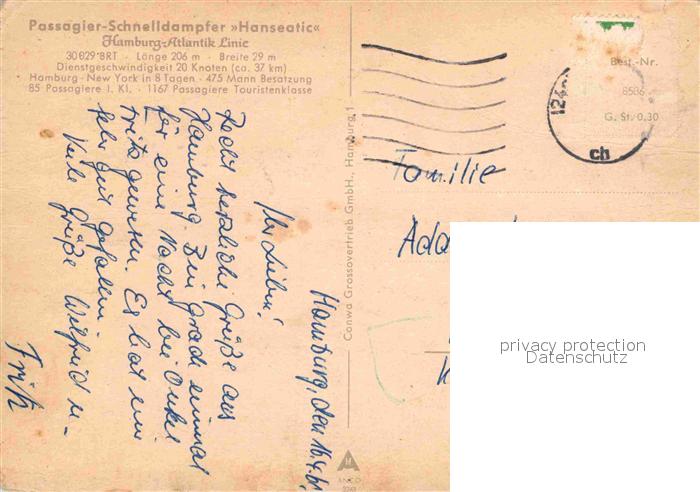 Passagier-Schnelldampfer »Hanseatic«
Hamburg-Atlantik Linie
30 029 BRT · Länge 206 m · Breite 29 m
Dienstgeschwindigkeit 20 Knoten (ca. 37 km)
Hamburg - New York in 8 Tagen · 475 Mann Besatzung
85 Passagiere I. Kl. · 1167 Passagiere Touristenklasse
Hamburg, den 16.4.61
Ihr Lieben!
Recht herzliche Grüße aus
Hamburg. Bin grade einmal
für eine Nacht bei Onkel
Fritz gewesen. Es hat mir
sehr gut gefallen.
Viele Grüße Wilfried u.
Fritz
Conwa Grossovertrieb GmbH., Hamburg 1
Best.-Nr.
8586
G. St. 0.30
ch
Familie
privacy protection
Datenschutz